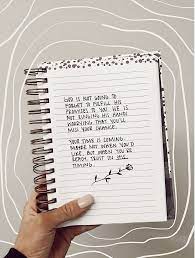 GOD IS NOT GOING TO
FORGET TO FULFILL HIS
PROMISES TO YOU. HE IS
NOT RINGING HIS HANDS
WORRYING THAT YOU'LL
MISS YOUR CHANCE.
YOUR TIME IS COMING.
MAYBE NOT WHEN YOU'D
LIKE, BUT WHEN YOU'RE
READY, TRUST IN HIS
TIMING.